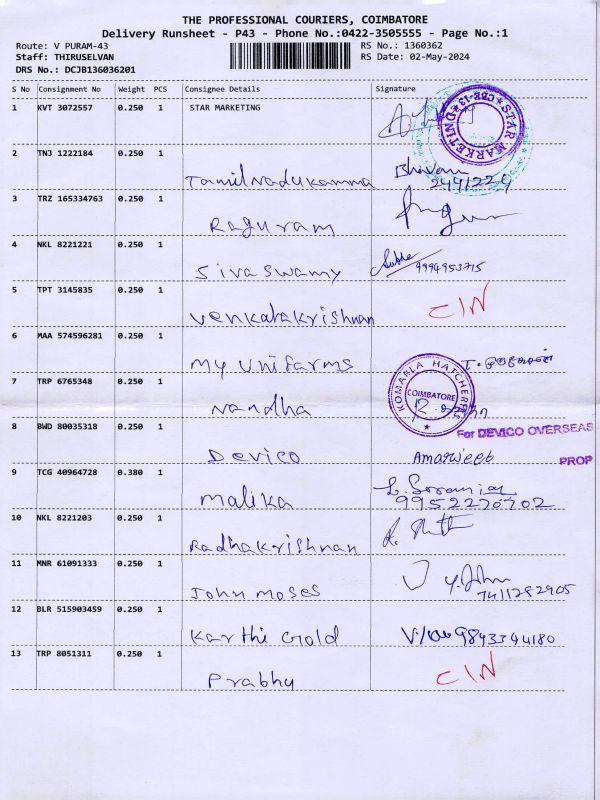 THE PROFESSIONAL COURIERS, COIMBATORE
Delivery Runsheet - P43 - Phone No.:0422-3505555 - Page No.:1
Route: V PURAM-43 RS No.: 1360362
Staff: THIRUSELVAN RS Date: 02-May-2024
DRS No.: DCJB136036201
S No Consignment No Weight PCS Consignee Details Signature
1 KVT 3072557 0.250 1 STAR MARKETING
STAR MARKETING ★ CBE-13 ★
2 TNJ 1222184 0.250 1
Tamilnadukamma
2441229
3 TRZ 165334763 0.250 1
Raguram
4 NKL 8221221 0.250 1
Sivaswamy 9994953715
5 TPT 3145835 0.250 1
Venkatakrishnan CIN
6 MAA 574596281 0.250 1
My Unifarms
7 TRP 6765348 0.250 1
Nandha
KOMARLA HATCHERIES
COIMBATORE
8 BWD 80035318 0.250 1
For DEVICO OVERSEAS
Devico Amarweeb
PROP
9 TCG 40964728 0.380 1
Malika
9952270702
10 NKL 8221203 0.250 1
Radhakrishnan
11 MNR 61091333 0.250 1
John Moses Y. John
7411282905
12 BLR 515903459 0.250 1
Karthi Gold 9843344180
13 TRP 8051311 0.250 1
Prabhu CIN